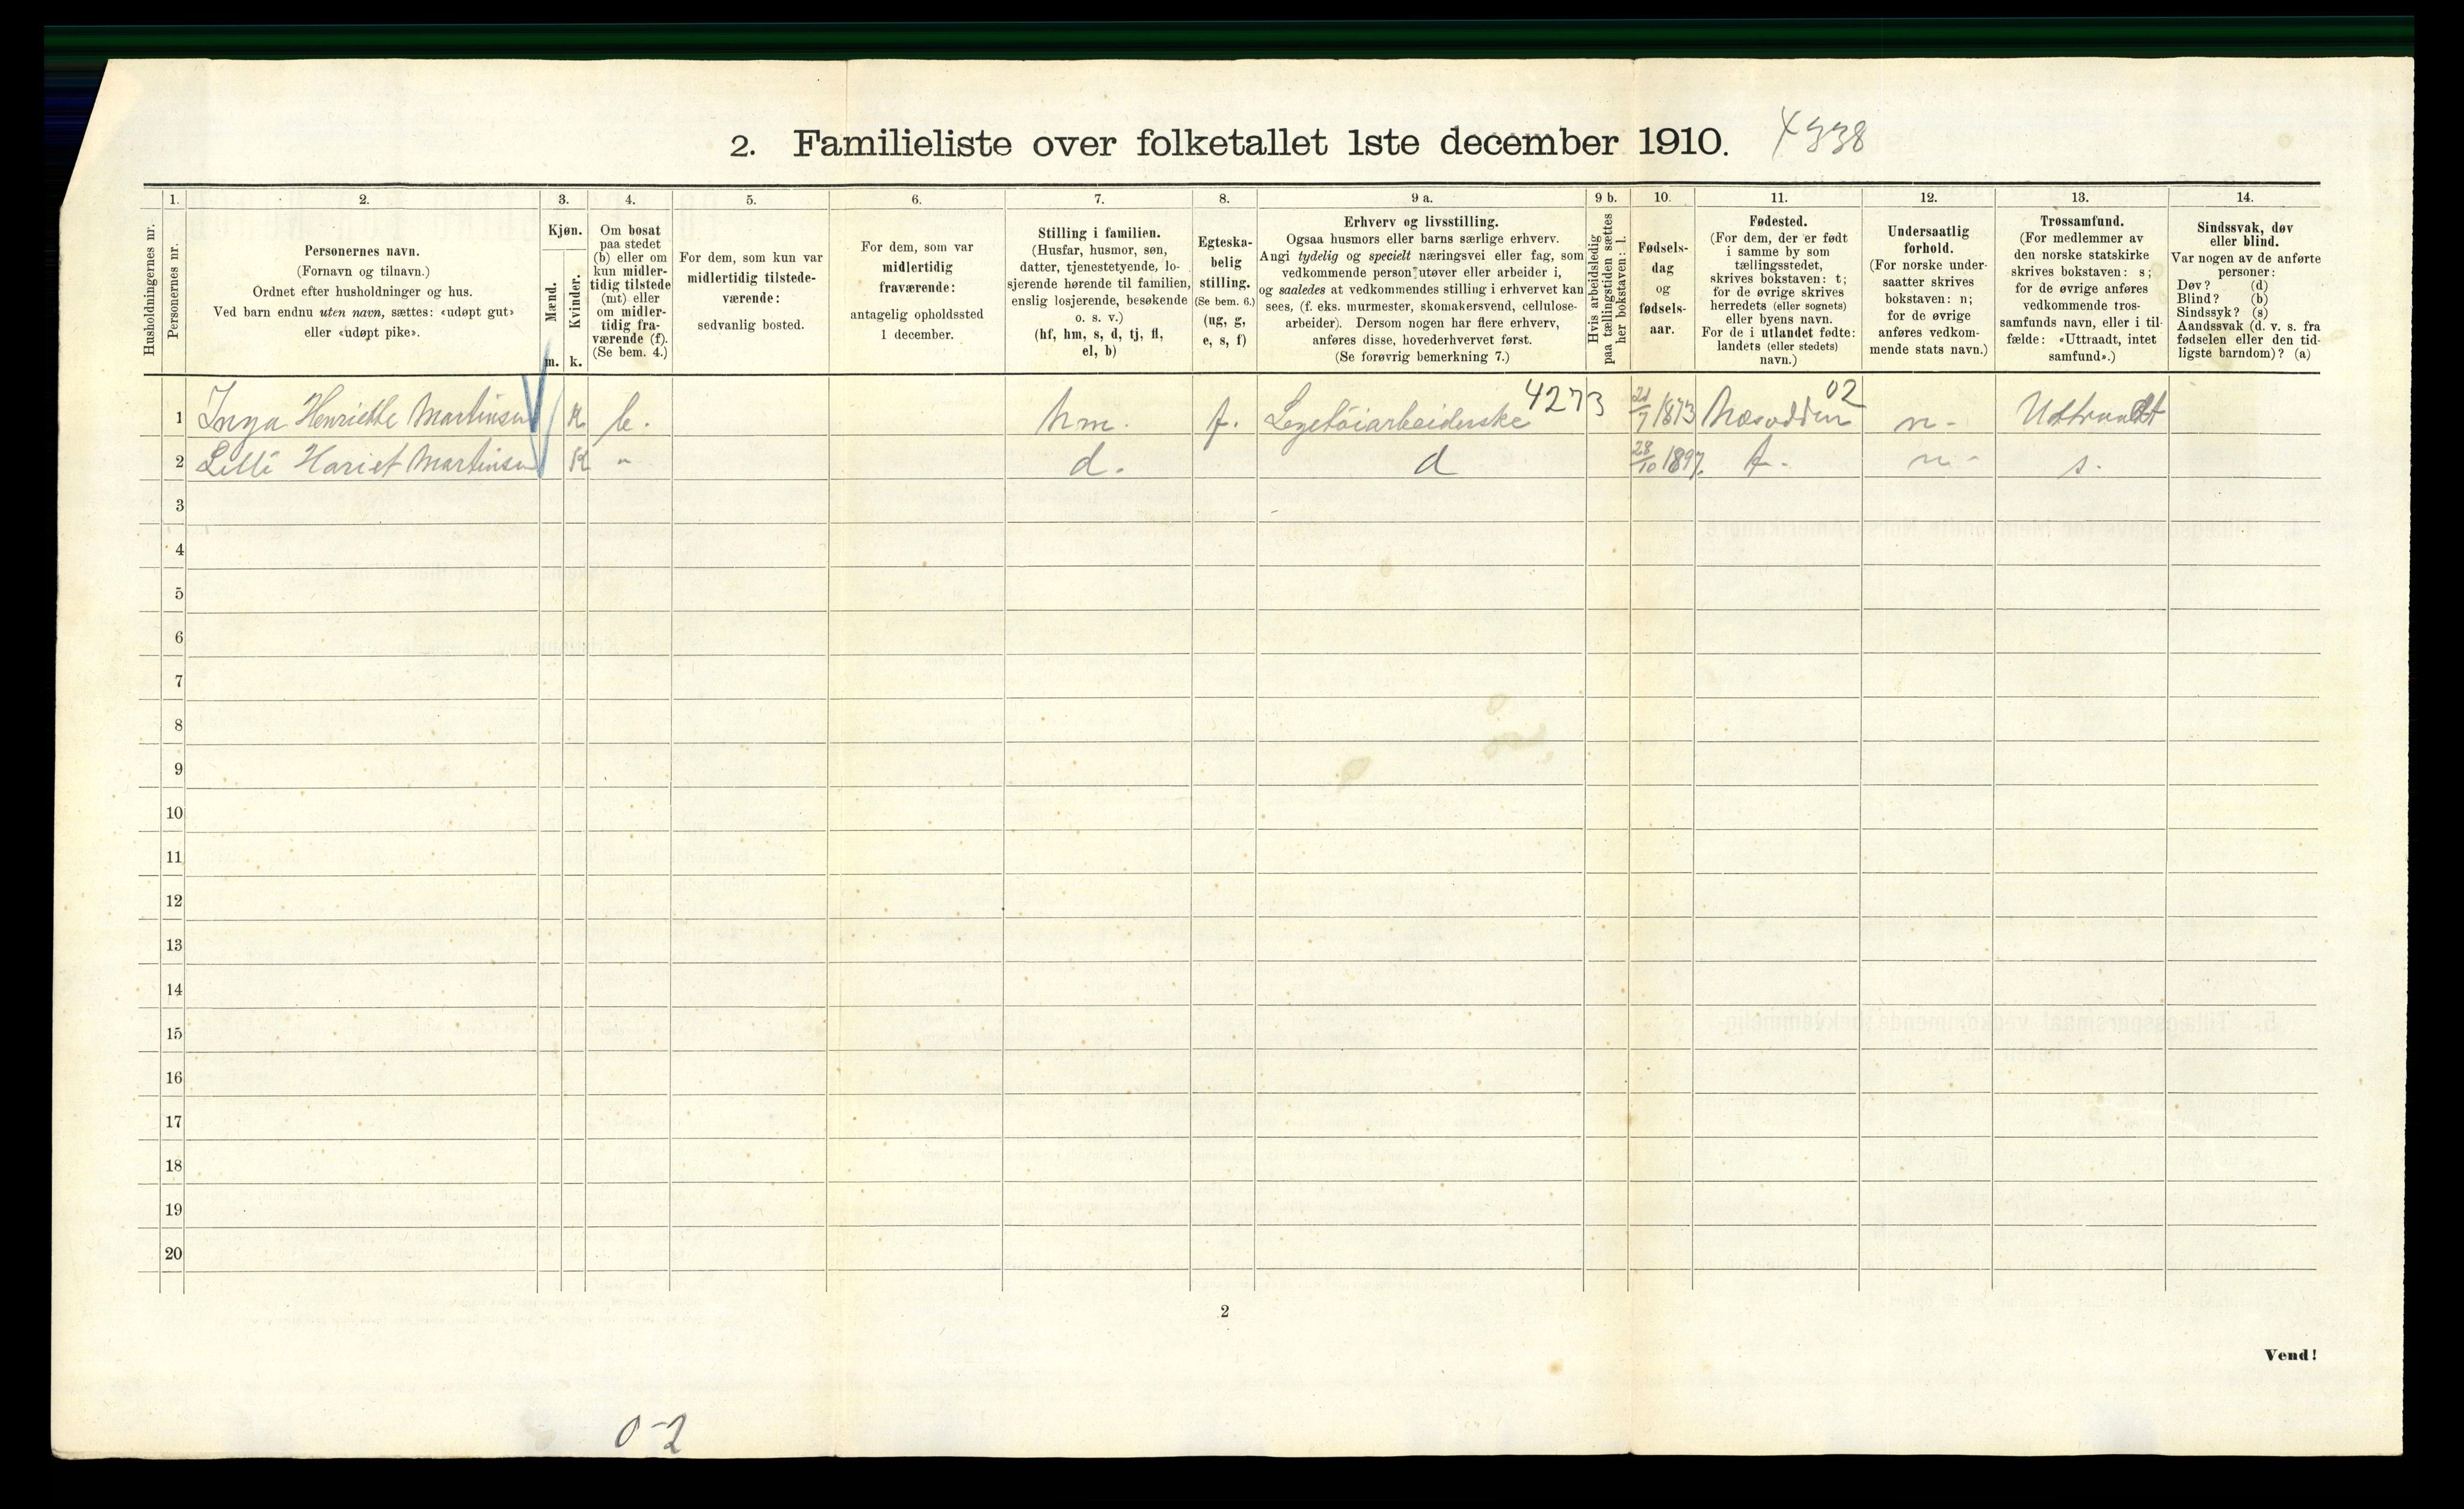 2. Familieliste over folketallet 1ste december 1910. 4338
Husholdningernes nr.
1.
Personernes nr.
2.
Personernes navn.
(Fornavn og tilnavn.)
Ordnet efter husholdninger og hus.
Ved barn endnu uten navn, sættes: «udøpt gut»
eller «udøpt pike».
3.
Kjøn.
Mænd.
m.
Kvinder.
k.
4.
Om bosat
paa stedet
(b) eller om
kun midler-
tidig tilstede
(mt) eller
om midler-
tidig fra-
værende (f).
(Se bem. 4.)
5.
For dem, som kun var
midlertidig tilstede-
værende:
sedvanlig bosted.
6.
For dem, som var
midlertidig
fraværende:
antagelig opholdssted
1 december.
7.
Stilling i familien.
(Husfar, husmor, søn,
datter, tjenestetyende, lo-
sjerende hørende til familien,
enslig losjerende, besøkende
o. s. v.)
(hf, hm, s, d, tj, fl,
el, b)
8.
Egteska-
belig
stilling.
(Se bem. 6.)
(ug, g,
e, s, f)
9 a.
Erhverv og livsstilling.
Ogsaa husmors eller barns særlige erhverv.
Angi tydelig og specielt næringsvei eller fag, som
vedkommende person utøver eller arbeider i,
og saaledes at vedkommendes stilling i erhvervet kan
sees, (f. eks. murmester, skomakersvend, cellulose-
arbeider). Dersom nogen har flere erhverv,
anføres disse, hovederhvervet først.
(Se forøvrig bemerkning 7.)
9 b.
Hvis arbeidsledig
paa tællingstiden sættes
her bokstaven: l.
10.
Fødsels-
dag
og
fødsels-
aar.
11.
Fødested.
(For dem, der er født
i samme by som
tællingsstedet,
skrives bokstaven: t;
for de øvrige skrives
herredets (eller sognets)
eller byens navn.
For de i utlandet fødte:
landets (eller stedets)
navn.)
12.
Undersaatlig
forhold.
(For norske under-
saatter skrives
bokstaven: n;
for de øvrige
anføres vedkom-
mende stats navn.)
13.
Trossamfund.
(For medlemmer av
den norske statskirke
skrives bokstaven: s;
for de øvrige anføres
vedkommende tros-
samfunds navn, eller i til-
fælde: «Uttraadt, intet
samfund».)
14.
Sindssvak, døv
eller blind.
Var nogen av de anførte
personer:
Døv? (d)
Blind? (b)
Sindssyk? (s)
Aandssvak (d. v. s. fra
fødselen eller den tid-
ligste barndom)? (a)
1 Inga Henriette Martinsen K b. hm. f. Legetøiarbeiderske 4273 /7 1873 Næsodden 02 n- Uttraadt
2 Lilli Hariet Martinsen K " d. d 28/10 1897. t. n- s.
3
4
5
6
7
8
9
10
11
12
13
14
15
16
17
18
19
20
2
Vend!
0-2